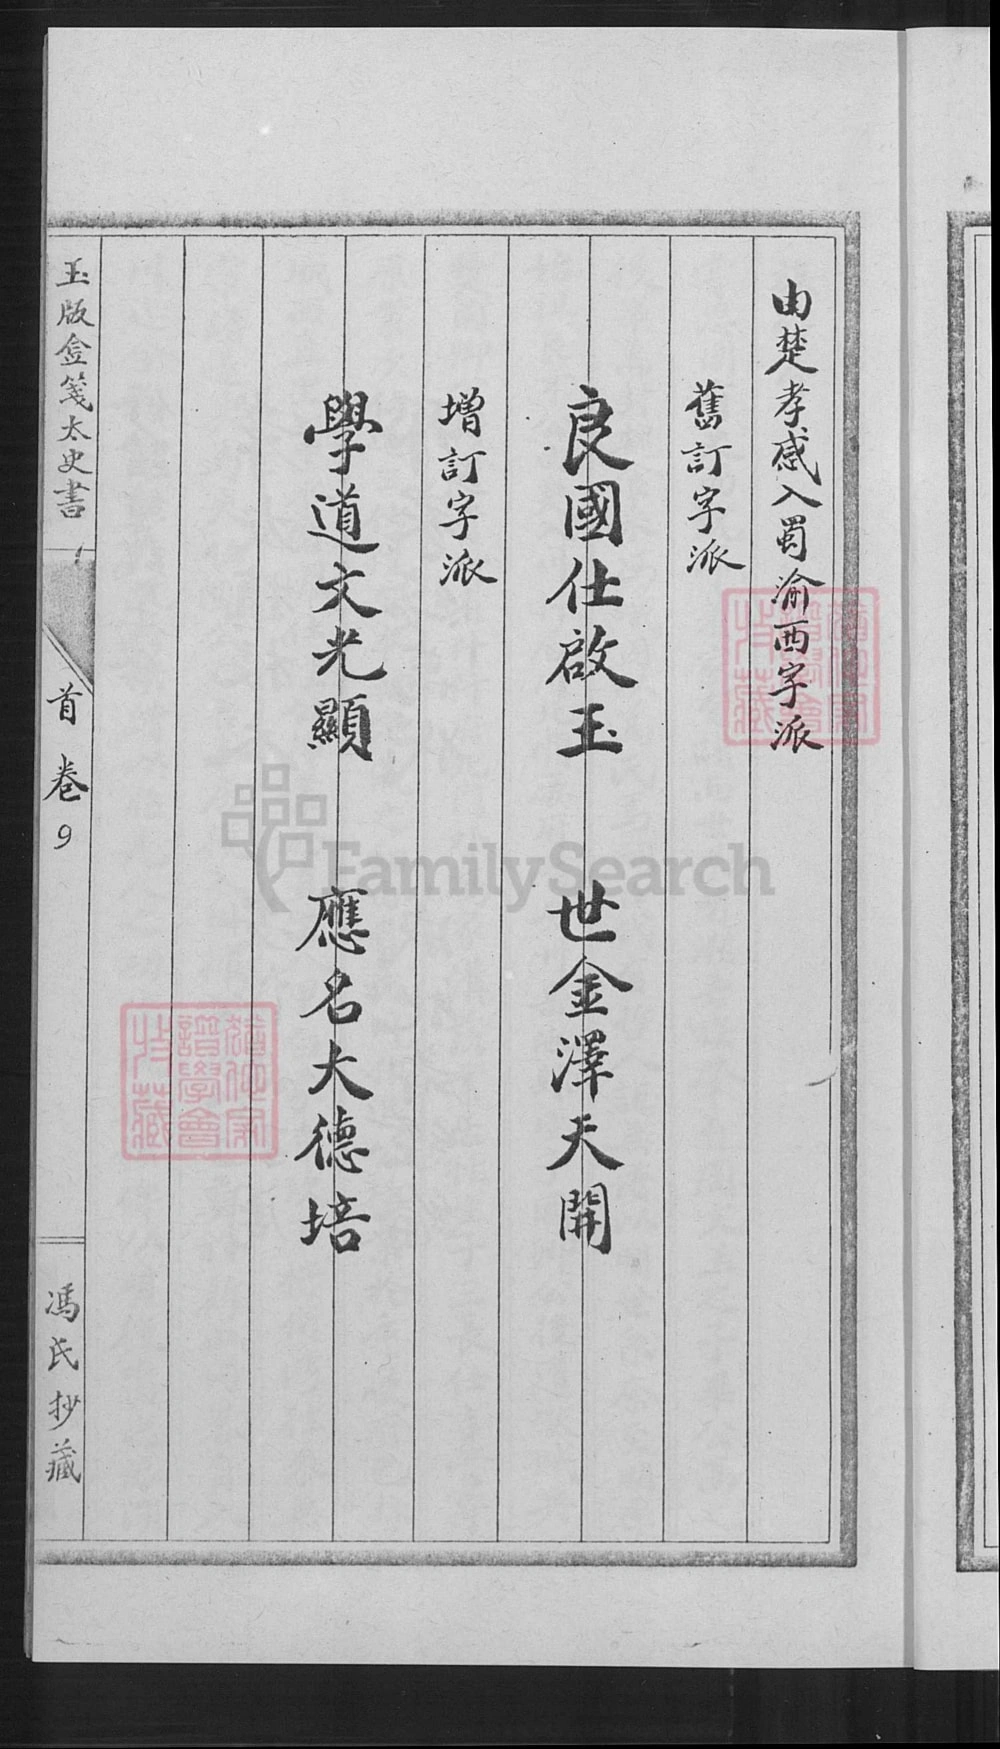 由楚孝感入蜀渝西字派
舊訂字派
良國仕啟玉 世金澤天開
增訂字派
學道文光顯 應名大德培
玉版金箋太史書
首卷9
馮氏抄藏
FamilySearch
譜學會
特藏
譜學會
特藏